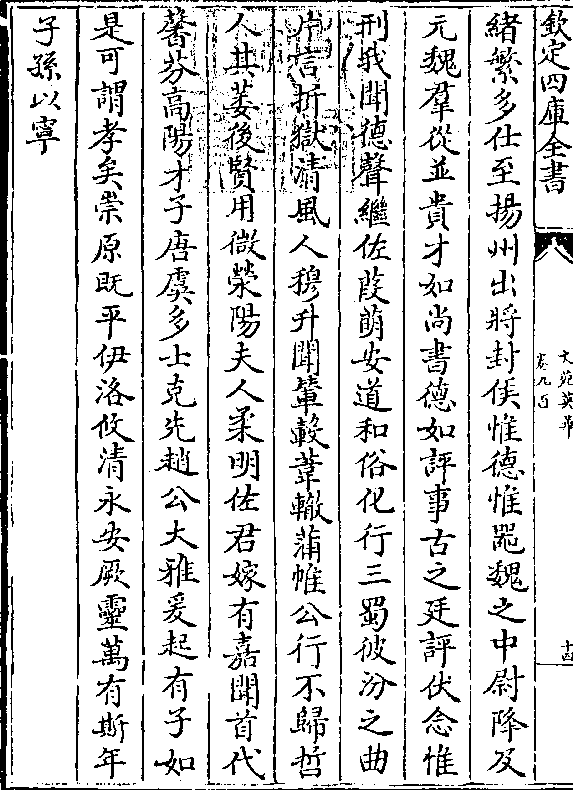 欽定四庫全書
文苑英華
卷九百
十四
緒繁多仕至揚州出將封侯惟德惟器魏之中尉降及
元魏羣從並貴才如尚書德如評事古之廷評伏念惟
刑我聞德聲繼佐葭萌安道和俗化行三蜀彼汾之曲
片言折獄清風人穆升聞輦轂葦轍蒲帷公行不歸哲
人其萎後賢用微滎陽夫人柔明佐君嫁有嘉聞首代
馨芬高陽才子唐虞多士克先趙公大雅爰起有子如
是可謂孝矣崇原既平伊洛攸清永安厥靈萬有斯年
子孫以寧